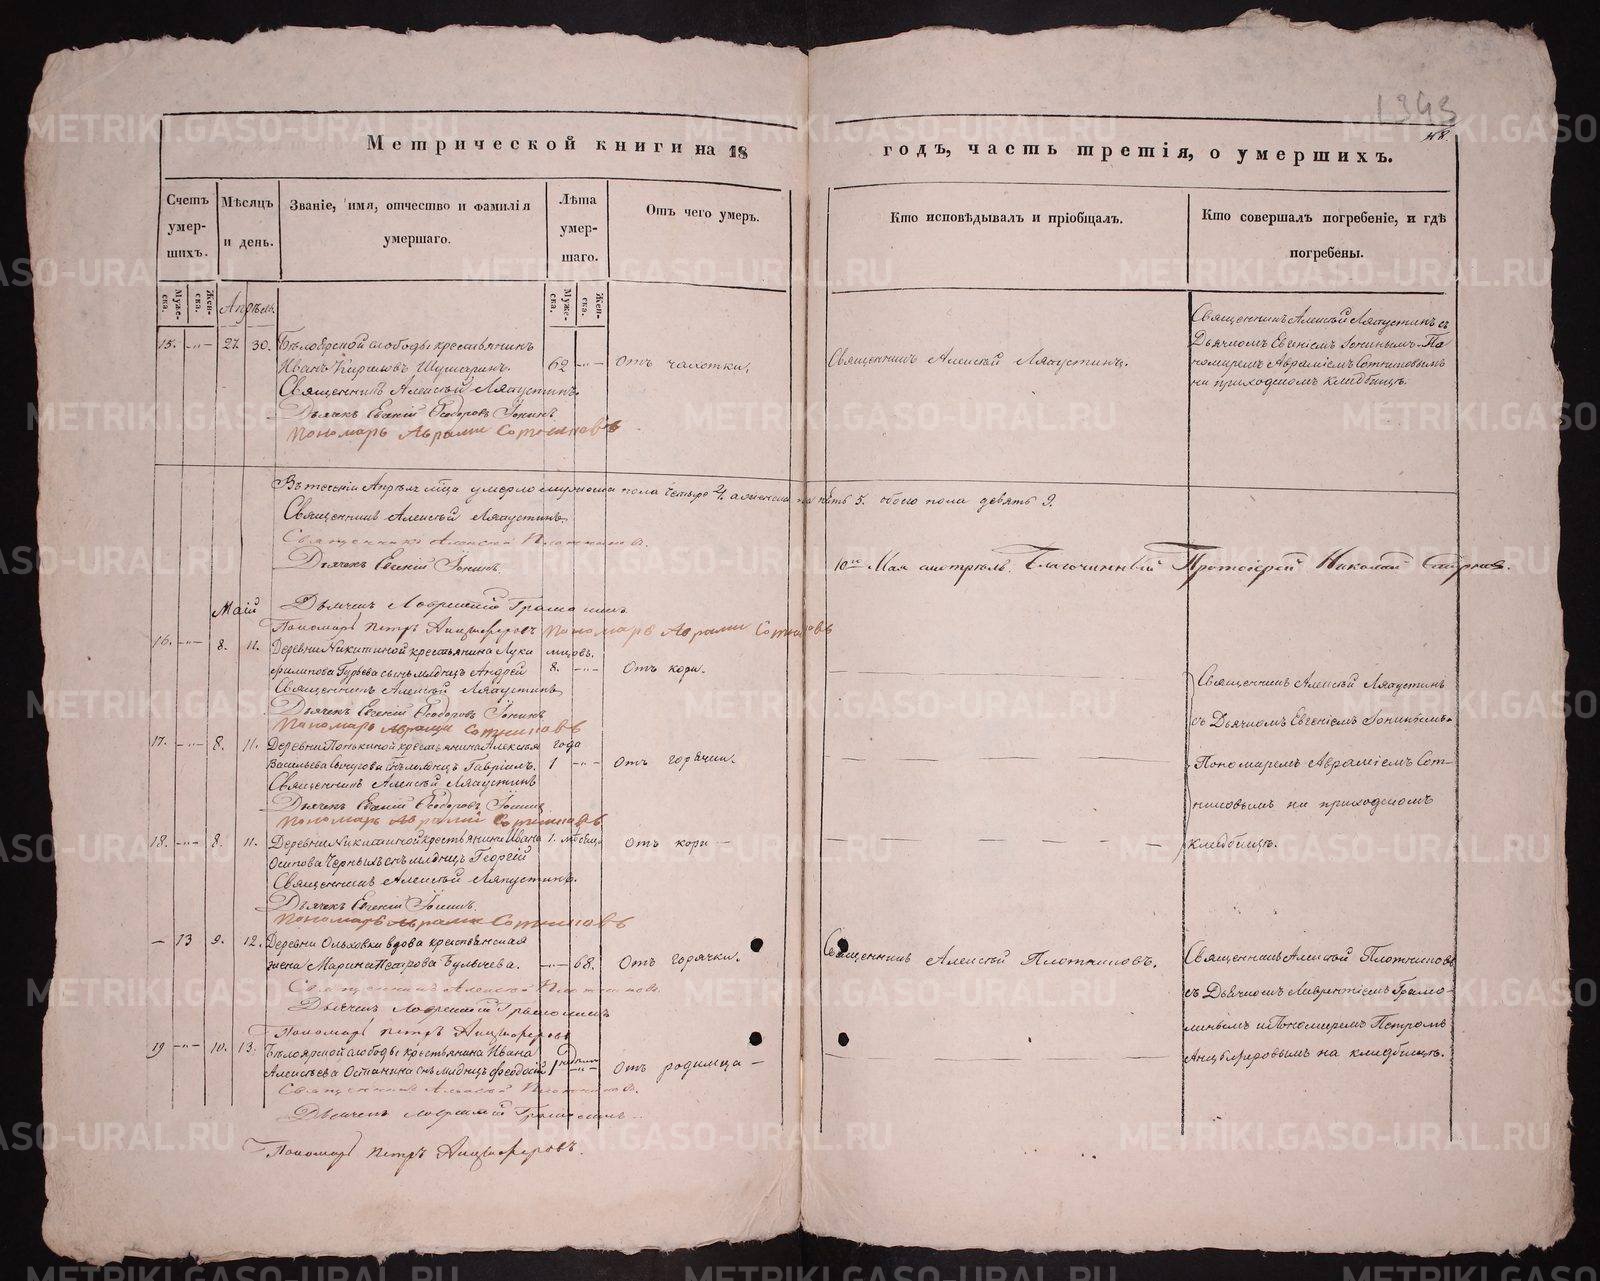 1343
Метрической книги на 18
годъ, часть третія, о умершихъ.
Счетъ умер-шихъ.
Мѣсяцъ и день.
Званіе, имя, отчество и фамилія умершаго.
Лѣта умер-шаго.
Отъ чего умеръ.
Кто исповѣдывалъ и пріобщалъ.
Кто совершалъ погребеніе, и гдѣ погребены.
Муже-ска.
Жен-ска.
Муже-ска.
Жен-ска.
Апрѣль.
15. -"- 27. 30. Бѣлоярской слободы крестьянинъ
Иванъ Кириловъ Шушаринъ. 62 -"- Отъ чахотки.
Священникъ Алексѣй Ляпустинъ.
Священникъ Алексѣй Ляпустинъ съ
Дьячкомъ Евгеніемъ Іонинымъ По-
номаремъ Авраміемъ Сотниковымъ
на приходскомъ кладбищѣ.
Священникъ Алексѣй Ляпустинъ.
Дьячекъ Евгеній Ѳеодоровъ Іонинъ
Пономарь Аврамій Сотниковъ
Въ теченіи Апрѣля м̃ца умерло мужеска пола четыре 4. а женска пять 5. обоего пола девять 9.
Священникъ Алексѣй Ляпустинъ.
Священникъ Алексѣй Плотниковъ.
Дьячекъ Евгеній Іонинъ.
10го Мая смотрѣлъ. Благочинный Протоіерей Николай
Маій
Дьячекъ Лаврентій
Пономарь Петръ Анцыферовъ Пономарь Аврамій Сотниковъ
16. -"- 8. 11. Деревни Никитиной крестьянина Луки мцовъ.
Филипова Гурьева сынъ младнцъ Андрей 8. -"- Отъ кори.
Священникъ Алексѣй Ляпустинъ
Дьячекъ Евгеній Ѳеодоровъ Іонинъ
Пономарь Аврамій Сотниковъ
Священникъ Алексѣй Ляпустинъ
съ Дьячкомъ Евгеніемъ Іонинымъ
Пономаремъ Авраміемъ Сот-
никовымъ на приходскомъ
кладбищѣ.
17. -"- 8. 11. Деревни крестьянина Алексѣя года
Васильева снъ младнцъ Гавріилъ. 1 -"- Отъ горячки.
Священникъ Алексѣй Ляпустинъ
Дьячекъ Евгеній Ѳеодоровъ Іонинъ
Пономарь Аврамій Сотниковъ
18. -"- 8. 11. Деревни Никитиной крестьянина Ивана 1. мѣсяца Отъ кори
Осипова Черныхъ снъ младнцъ Георгій
Священникъ Алексѣй Ляпустинъ.
Дьячекъ Евгеній Іонинъ.
Пономарь Аврамій Сотниковъ
- 13 9. 12. Деревни Ольховки вдова крестьянская
жена Марина Петрова Булычева. -"- 68. Отъ горячки.
Священникъ Алексѣй Плотниковъ.
Священникъ Алексѣй Плотниковъ
съ Дьячкомъ Лаврентіемъ Грамо-
линымъ и Пономаремъ Петромъ
Анцыферовымъ на кладбищѣ.
Священникъ Алексѣй Плотниковъ
Дьячекъ Лаврентій
Пономарь Петръ Анцыферовъ
19 -"- 10. 13. Бѣлоярской слободы крестьянина Ивана
Алексѣева Останина снъ младнцъ Ѳеодосій 1 -"- Отъ родимца
Священникъ Алексѣй Плотниковъ.
Дьячекъ Лаврентій
Пономарь Петръ Анцыферовъ.
METRIKI.GASO-URAL.RU